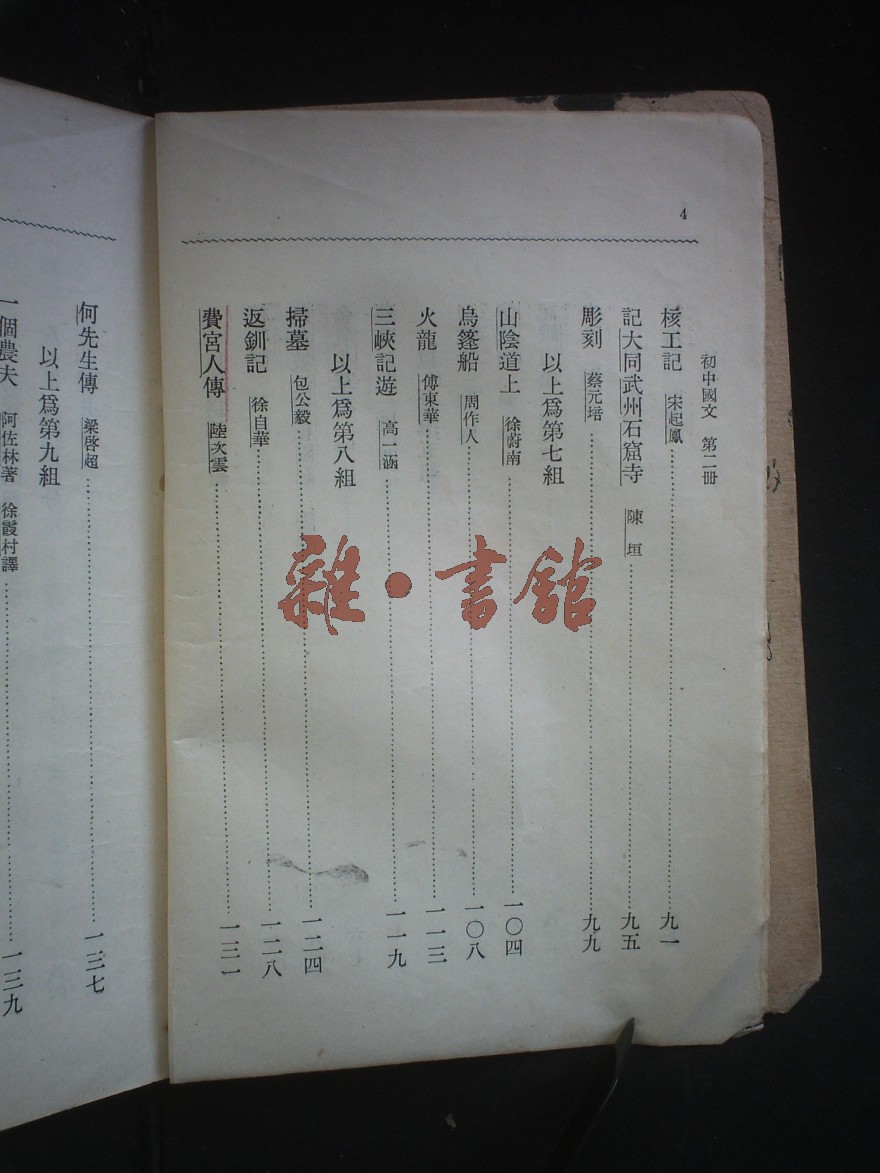 4
初中國文 第二冊
核工記 宋起鳳 九一
記大同武州石窟寺 陳垣 九五
彫刻 蔡元培 九九
以上爲第七組
山陰道上 徐蔚南 一〇四
烏篷船 周作人 一〇八
火龍 傅東華 一一三
三峽記遊 高一涵 一一九
以上爲第八組
掃墓 包公毅 一二四
返釧記 徐自華 一二八
費宮人傳 陸次雲 一三一
何先生傳 梁啓超 一三七
以上爲第九組
一個農夫 阿佐林著 徐霞村譯 一三九
雜·書館